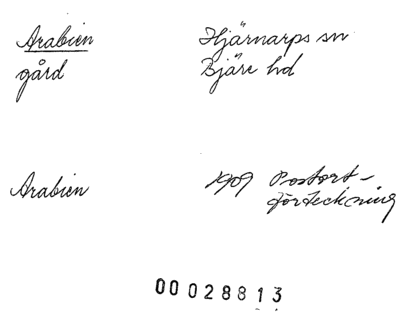 Arabien Hjärnarps sn
gård Bjäre hd
Arabien 1909 Postort-
förteckning
00028813